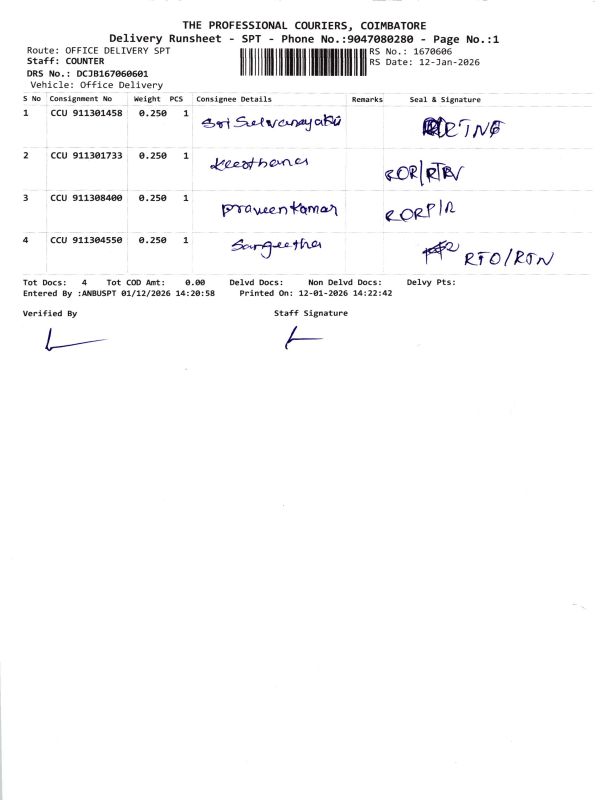 THE PROFESSIONAL COURIERS, COIMBATORE
Delivery Runsheet - SPT - Phone No.:9047080280 - Page No.:1
Route: OFFICE DELIVERY SPT RS No.: 1670606
Staff: COUNTER RS Date: 12-Jan-2026
DRS No.: DCJB167060601
Vehicle: Office Delivery
S No Consignment No Weight PCS Consignee Details Remarks Seal & Signature
1 CCU 911301458 0.250 1 Sri Selvanayaki
2 CCU 911301733 0.250 1 Keerthana
3 CCU 911308400 0.250 1 Praveenkumar
4 CCU 911304550 0.250 1 Sangeetha RTO/RTN
Tot Docs: 4 Tot COD Amt: 0.00 Delvd Docs: Non Delvd Docs: Delvy Pts:
Entered By :ANBUSPT 01/12/2026 14:20:58 Printed On: 12-01-2026 14:22:42
Verified By Staff Signature